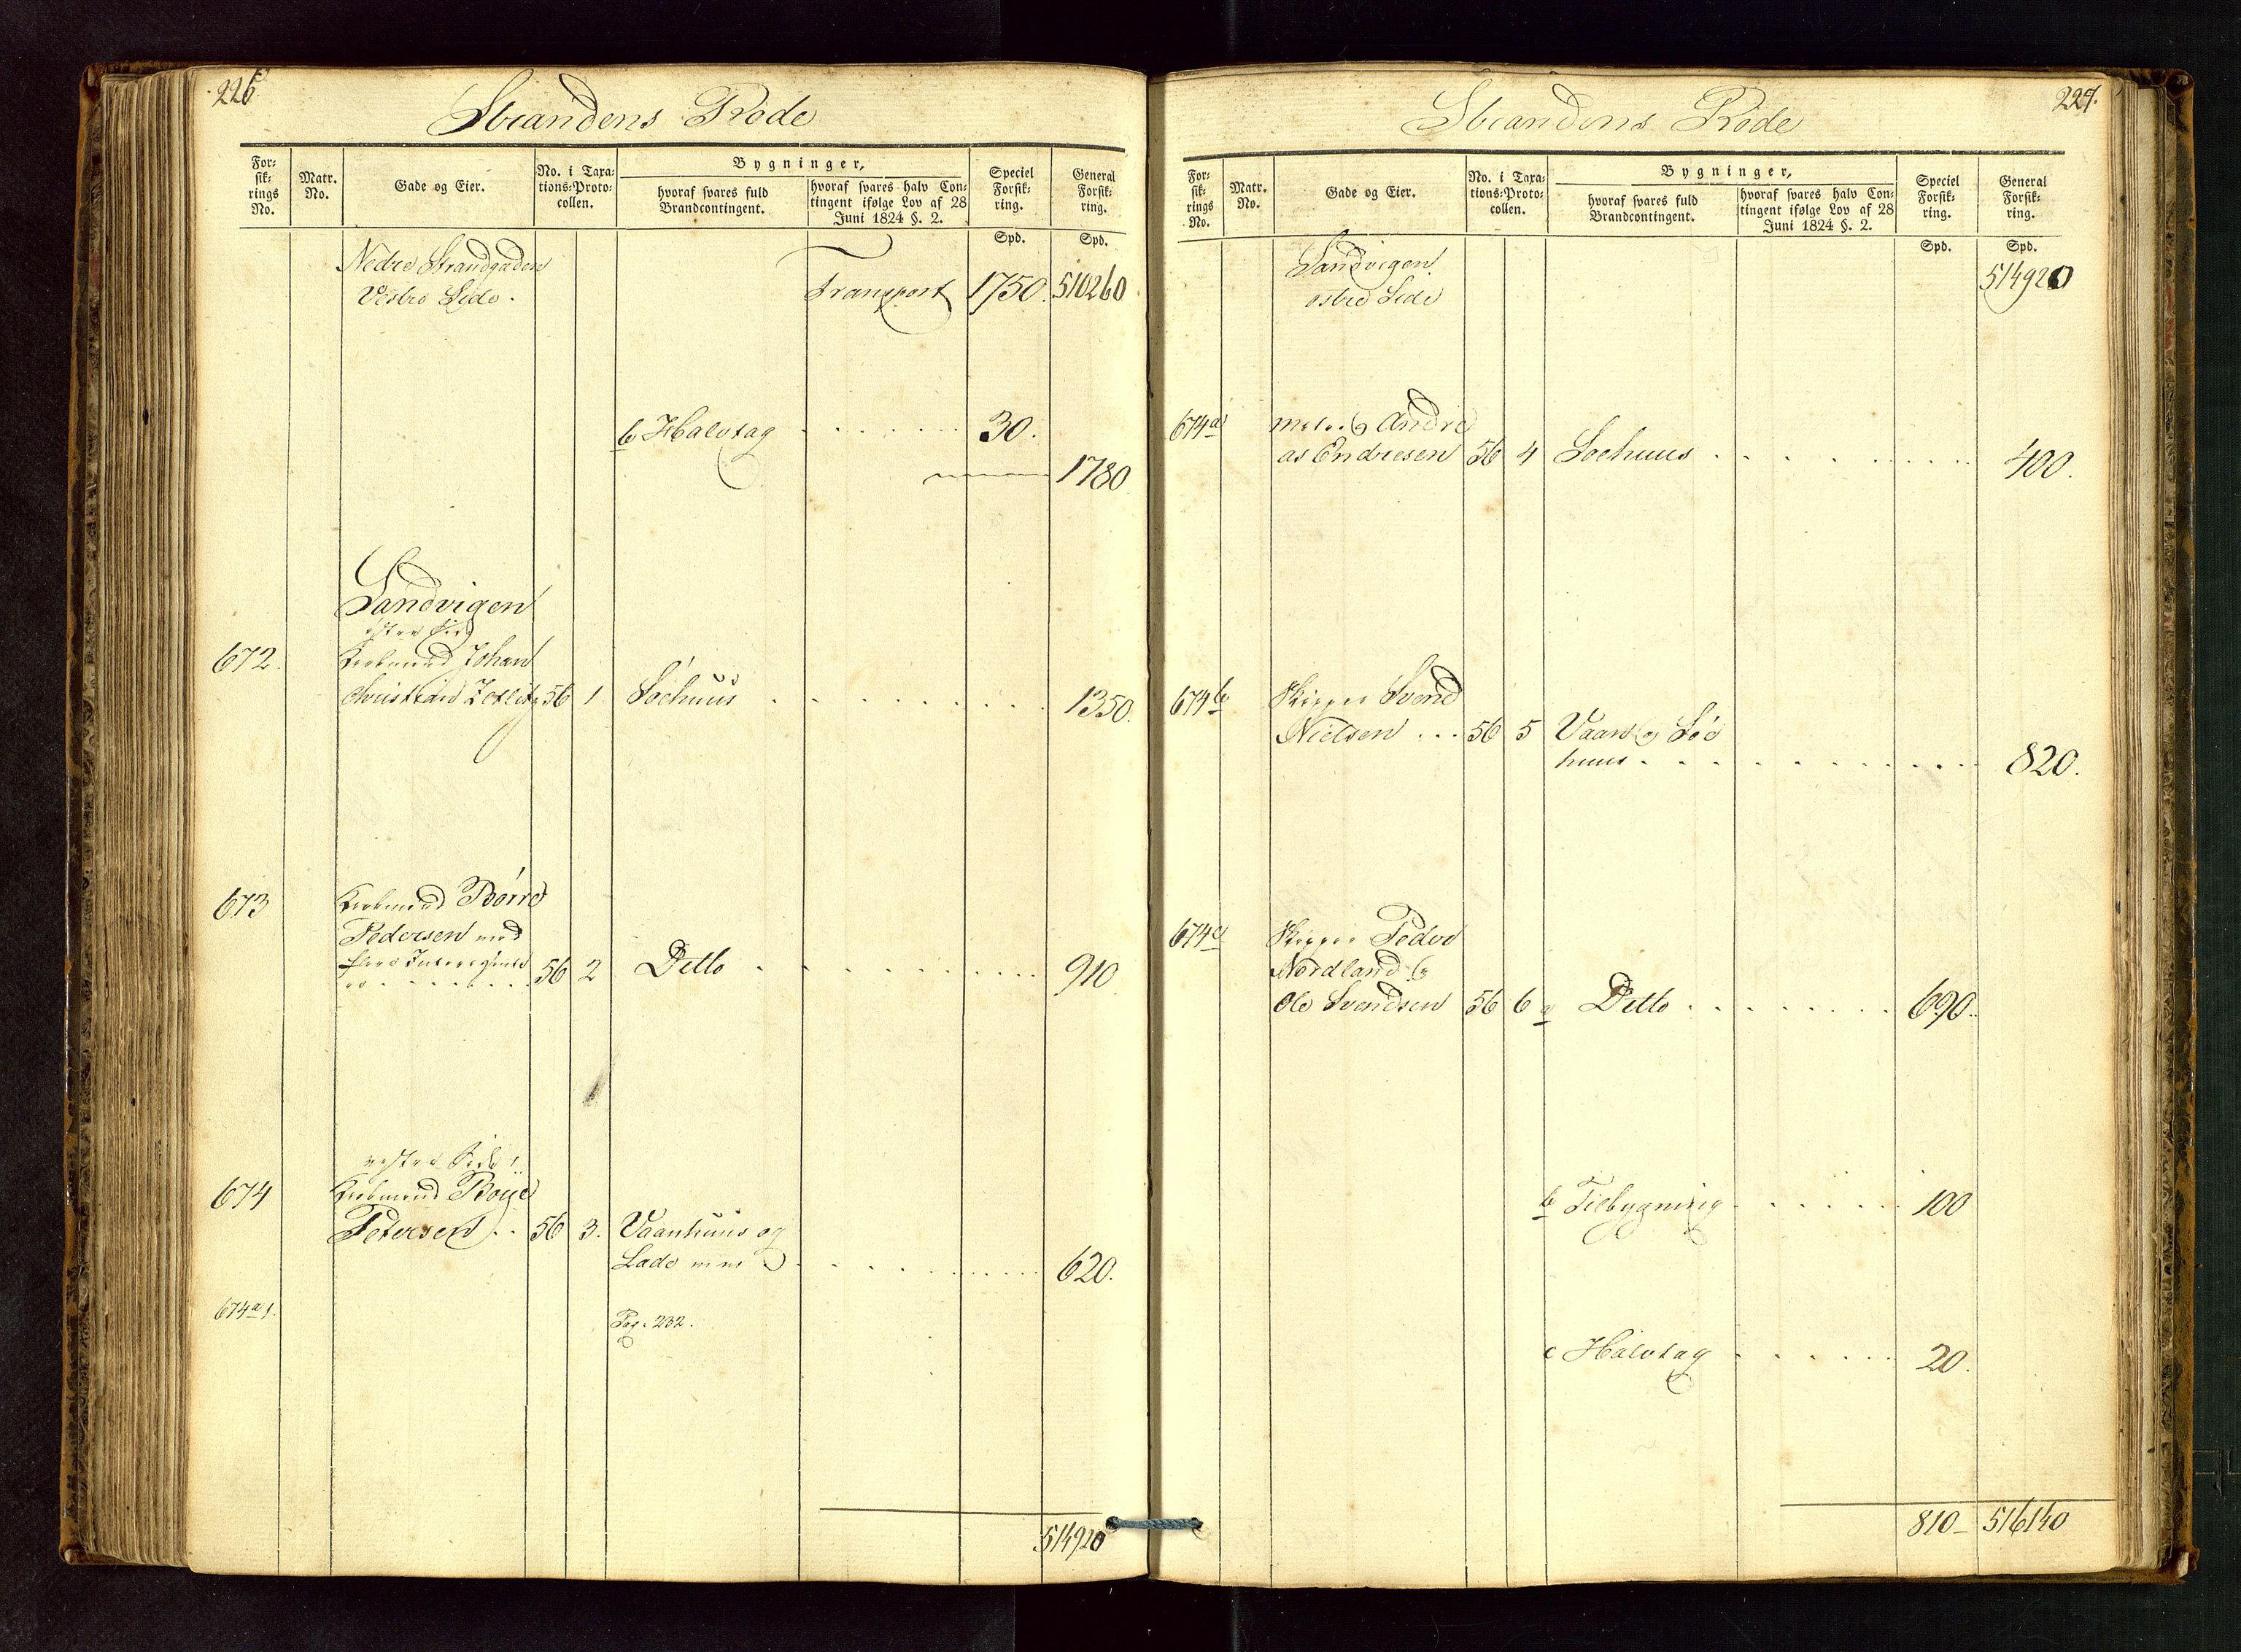 226.
Strandens Rode
For-
sik-
rings
No.
Matr.
No.
Gade og Eier.
No. i Taxa-
tions-Proto-
collen.
Bygninger,
hvoraf svares fuld
Brandcontingent.
hvoraf svares halv Con-
tingent ifølge Lov af 28
Juni 1824 §. 2.
Speciel
Forsik-
ring.
General
Forsik-
ring.
Spd. Spd.
Nedre Strandgaden
Vestre Side. Transport 1750. 510260
b Halvtag 30.
1780
Sandvigen
østre Side
672. Kiøbmand Johan
Christian Zetlitz 56 1 Søehuus 1350.
673 Kiøbmand Børre
Pedersen med
flere Interessente
er 56 2 Ditto 910
vestre Side
674 Kiøbmand Boye
Petersen 56 3. Vaanhuus og
Lade m m 620.
674a1. Pag. 232.
514920
227.
Strandens Rode
For-
sik-
rings
No.
Matr.
No.
Gade og Eier.
No. i Taxa-
tions-Proto-
collen.
Bygninger,
hvoraf svares fuld
Brandcontingent.
hvoraf svares halv Con-
tingent ifølge Lov af 28
Juni 1824 §. 2.
Speciel
Forsik-
ring.
General
Forsik-
ring.
Spd. Spd.
Sandvigen 514920
østre Side
674a Andre
as Endresen 56 4 Søehuus 400.
674b Skipper Svend
Nielsen 56 5 Vaan og Søe
huus 820.
674c Skipper Peder
Nordland og
Ole Svendsen 56 6 a Ditto 690.
b Tilbygning 100
c Halvtag 20.
810 516140